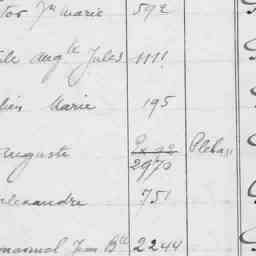 tor Jn Marie 592
ile Augte Jules 1111
lien Marie 195
Auguste 2970
alexandre 751
manuel Jean Bte 2244